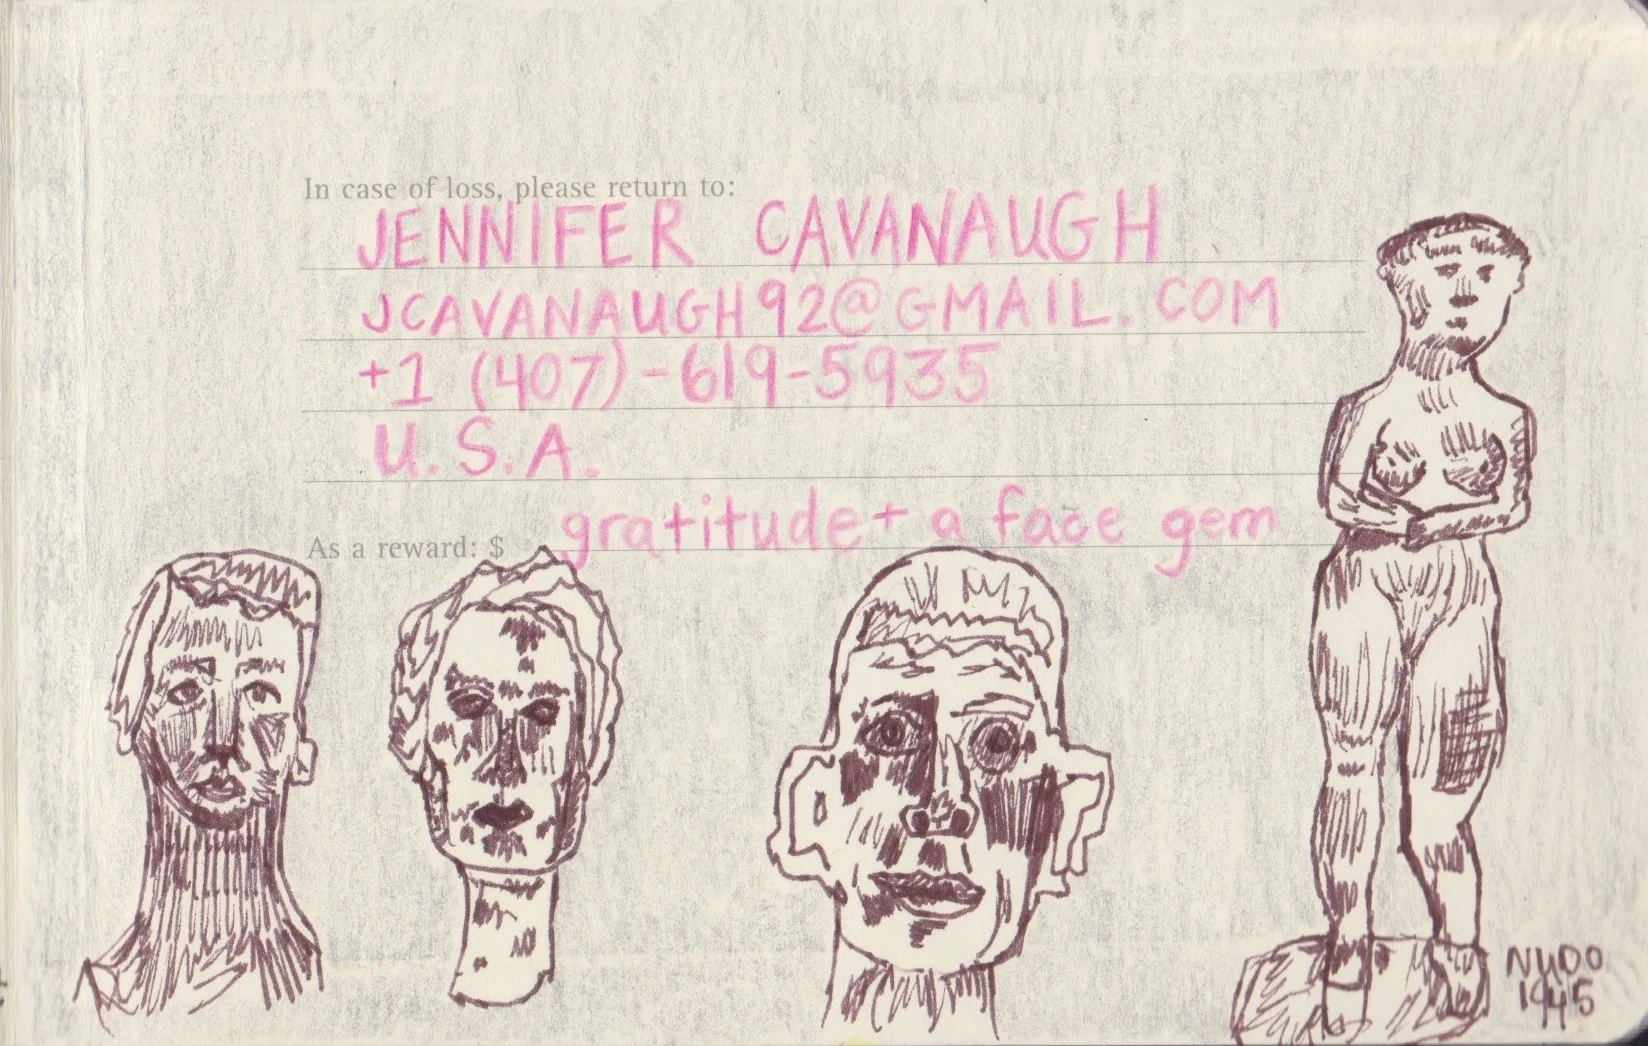 In case of loss, please return to:
JENNIFER CAVANAUGH
JCAVANAUGH92@GMAIL.COM
+1 (407)-619-5935
U.S.A.
As a reward: $ gratitude + a face gem
NUDO
1945